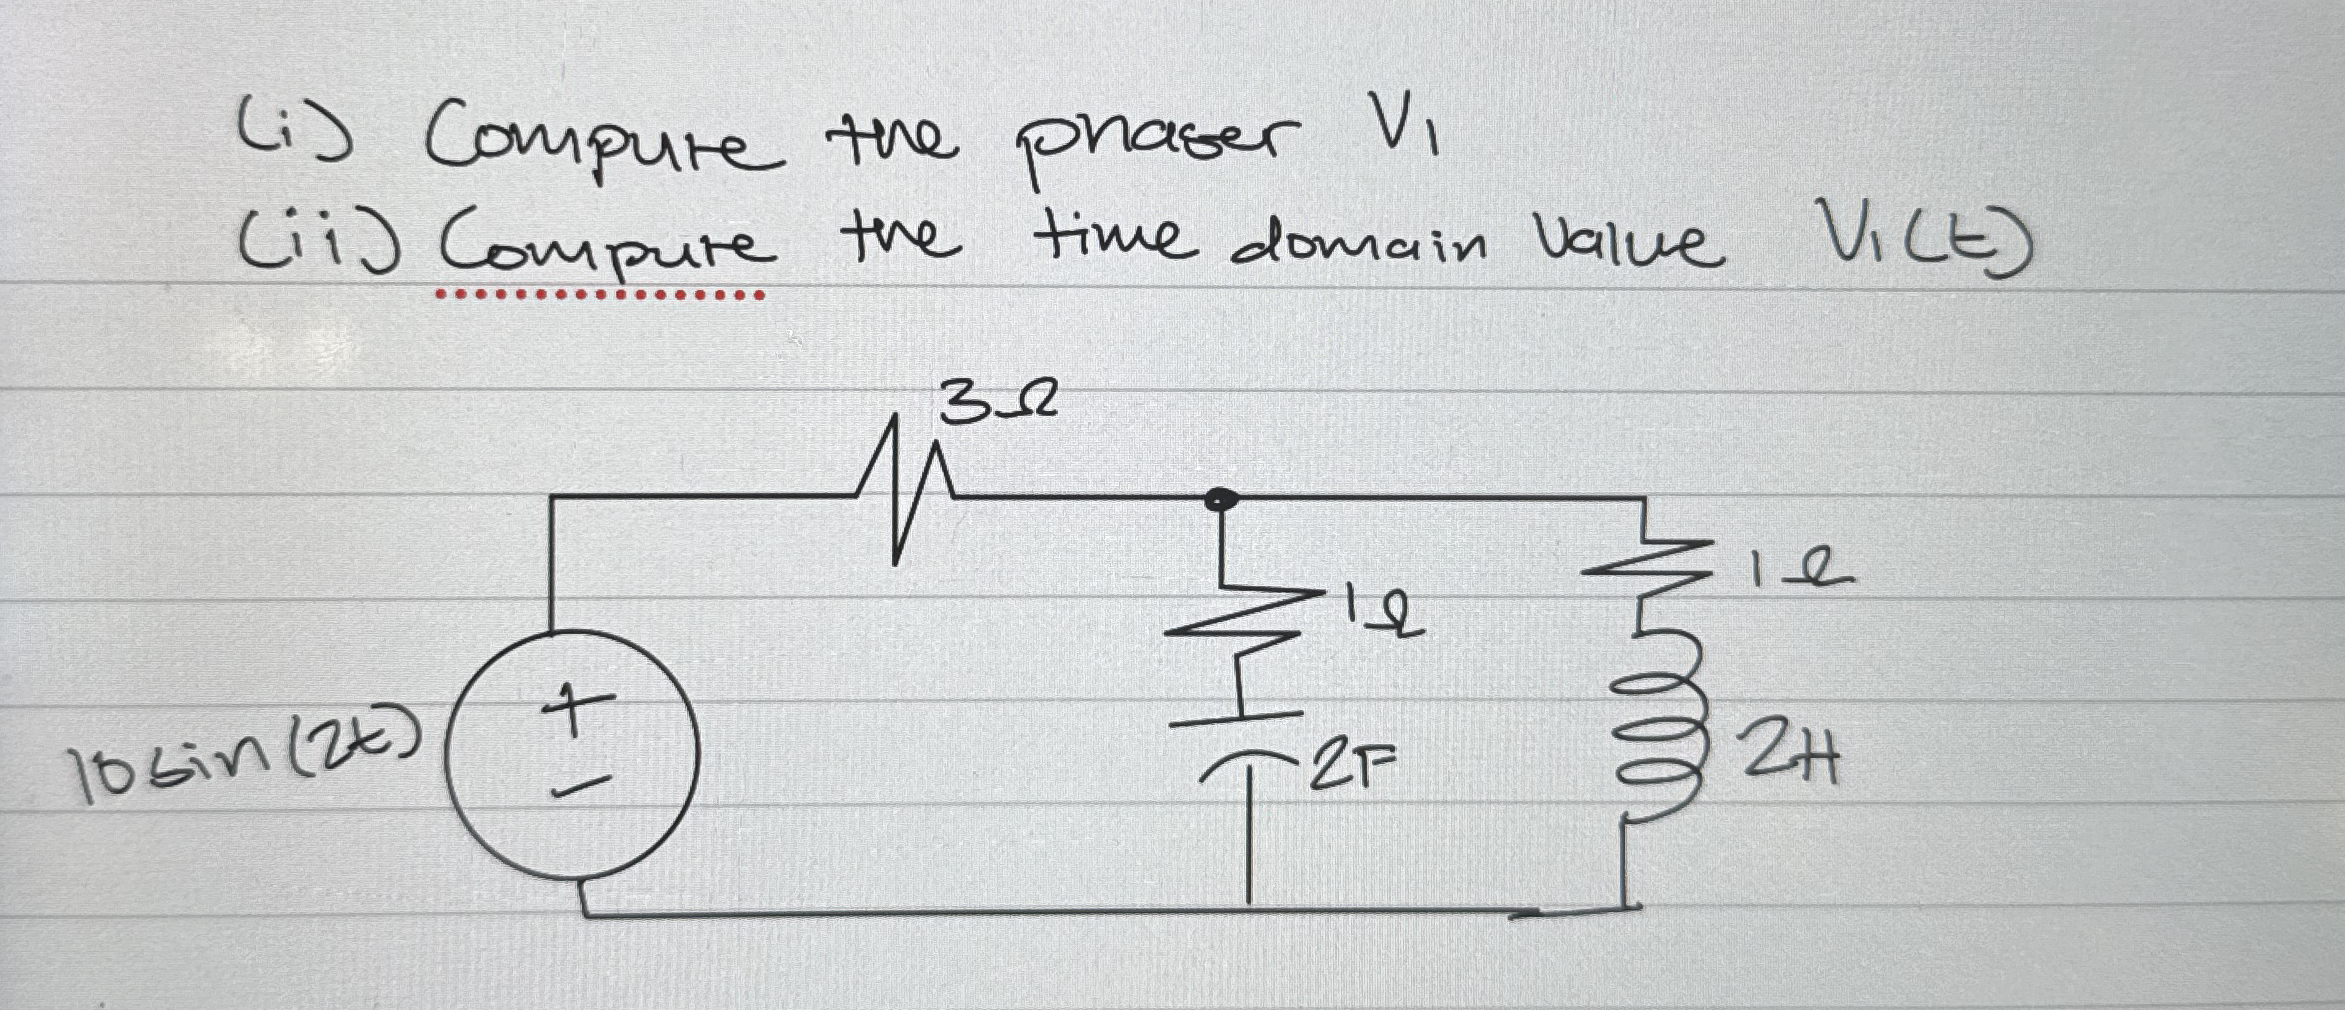 (i) Compute the phaser V1
(ii) Compute the time domain value V1(t)
3Ω
1Ω
1Ω
+
10sin(2t)
2F
2H
−